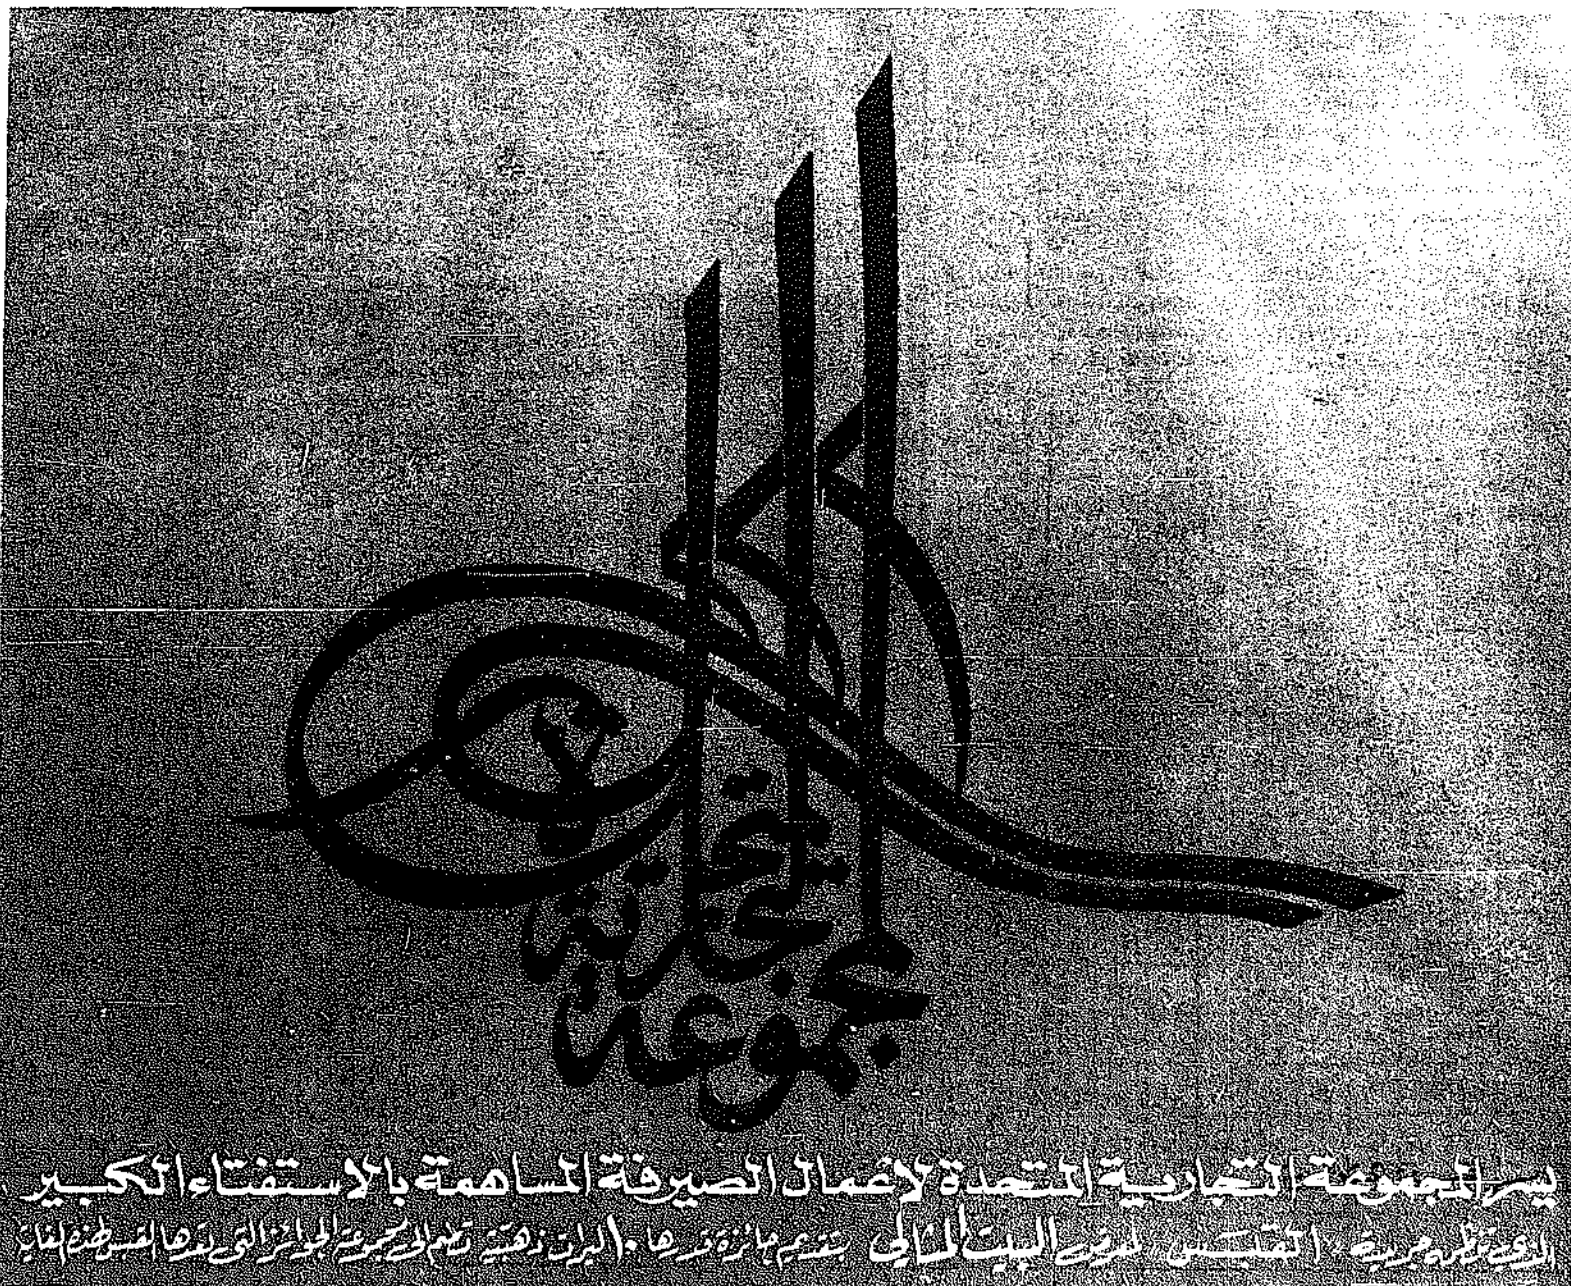 مجموعة
التجارية
المتحدة
يسر المجموعة التجارية المتحدة لأعمال الصيرفة المساهمة بالاستفتاء الكبير
الذي جريدة القبس لمعرض البيت المثالي بتقديم جائزة قدرها ١٠ ليرات ذهبية الى مجموعة الجوائز التي القبس لهذه الغاية